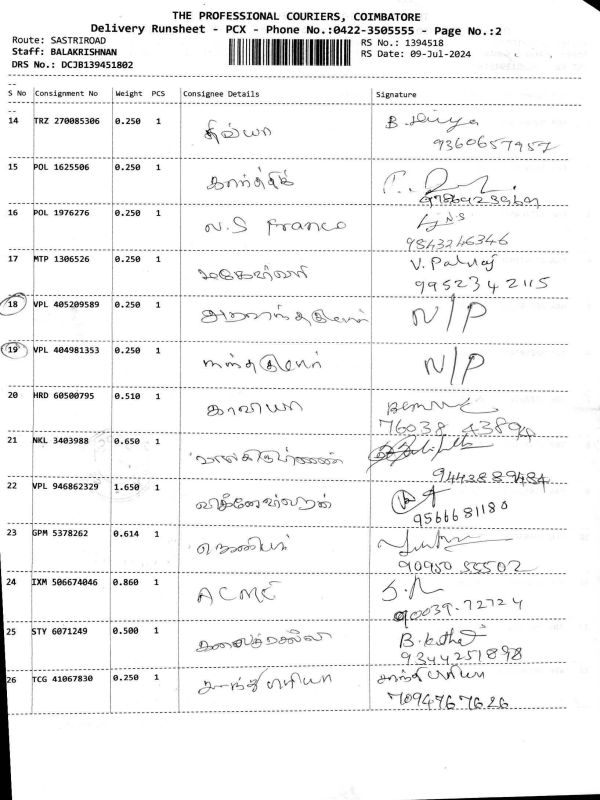 THE PROFESSIONAL COURIERS, COIMBATORE
Delivery Runsheet - PCX - Phone No.:0422-3505555 - Page No.:2
Route: SASTRIROAD
RS No.: 1394518
Staff: BALAKRISHNAN
RS Date: 09-Jul-2024
DRS No.: DCJB139451802
S No Consignment No Weight PCS Consignee Details Signature
14 TRZ 270085306 0.250 1 திவ்யா B. Divya
9360657957
15 POL 1625506 0.250 1 கார்த்திக்
16 POL 1976276 0.250 1 N.S Franco
9843246346
17 MTP 1306526 0.250 1 V. Palraj
9952342115
18 VPL 405209589 0.250 1 N/P
19 VPL 404981353 0.250 1 N/P
20 HRD 60500795 0.510 1 காவியா
76038 43894
21 NKL 3403988 0.650 1 பாலகிருஷ்ணன்
9443889484
22 VPL 946862329 1.650 1 விக்னேஷ்வரன்
9566681180
23 GPM 5378262 0.614 1
90950 55502
24 IXM 506674046 0.860 1 ACME S.R
90039-72724
25 STY 6071249 0.500 1
9344251898
26 TCG 41067830 0.250 1 சாந்திபிரியா சாந்திபிரியா
7094767626